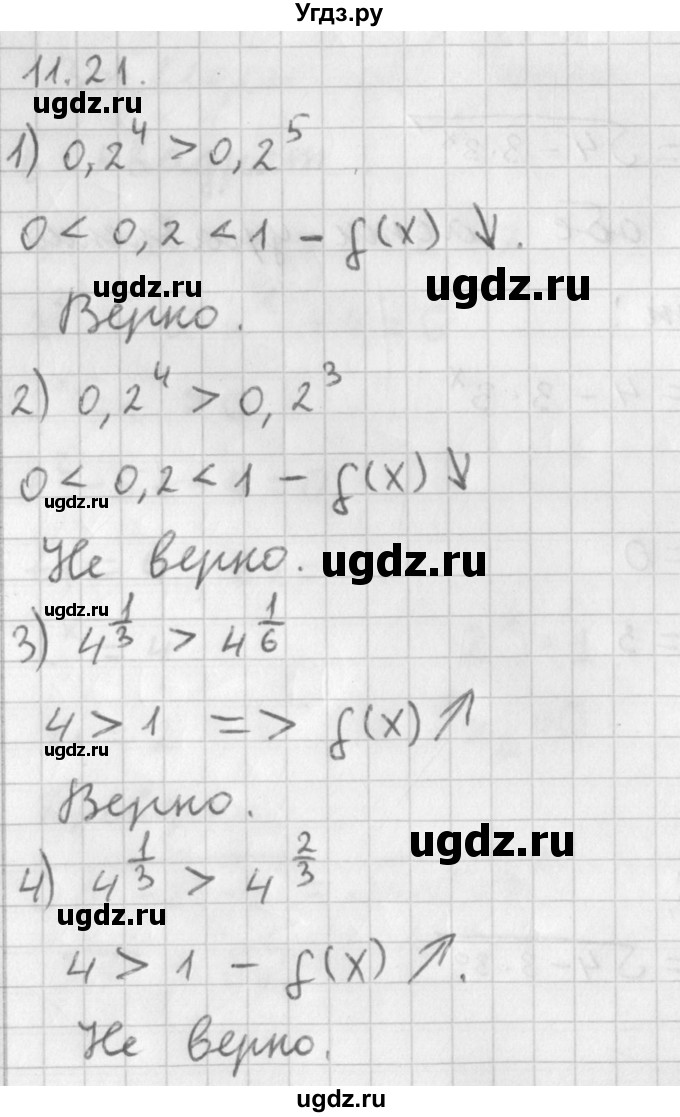 Угдз.ру
11.21.
ugdz.ru
1) 0,2⁴ > 0,2⁵
0 < 0,2 < 1 – f(x) ↓.
ugdz.ru ugdz.ru
Верно.
2) 0,2⁴ > 0,2³
0 < 0,2 < 1 – f(x) ↓
ugdz.ru
Не верно. ugdz.ru
ugdz.ru
3) 4^(1/3) > 4^(1/6)
4 > 1 => f(x) ↑
ugdz.ru
Верно.
ugdz.ru
4) 4^(1/3) > 4^(2/3)
ugdz.ru
4 > 1 – f(x) ↑.
Не верно.
ugdz.ru